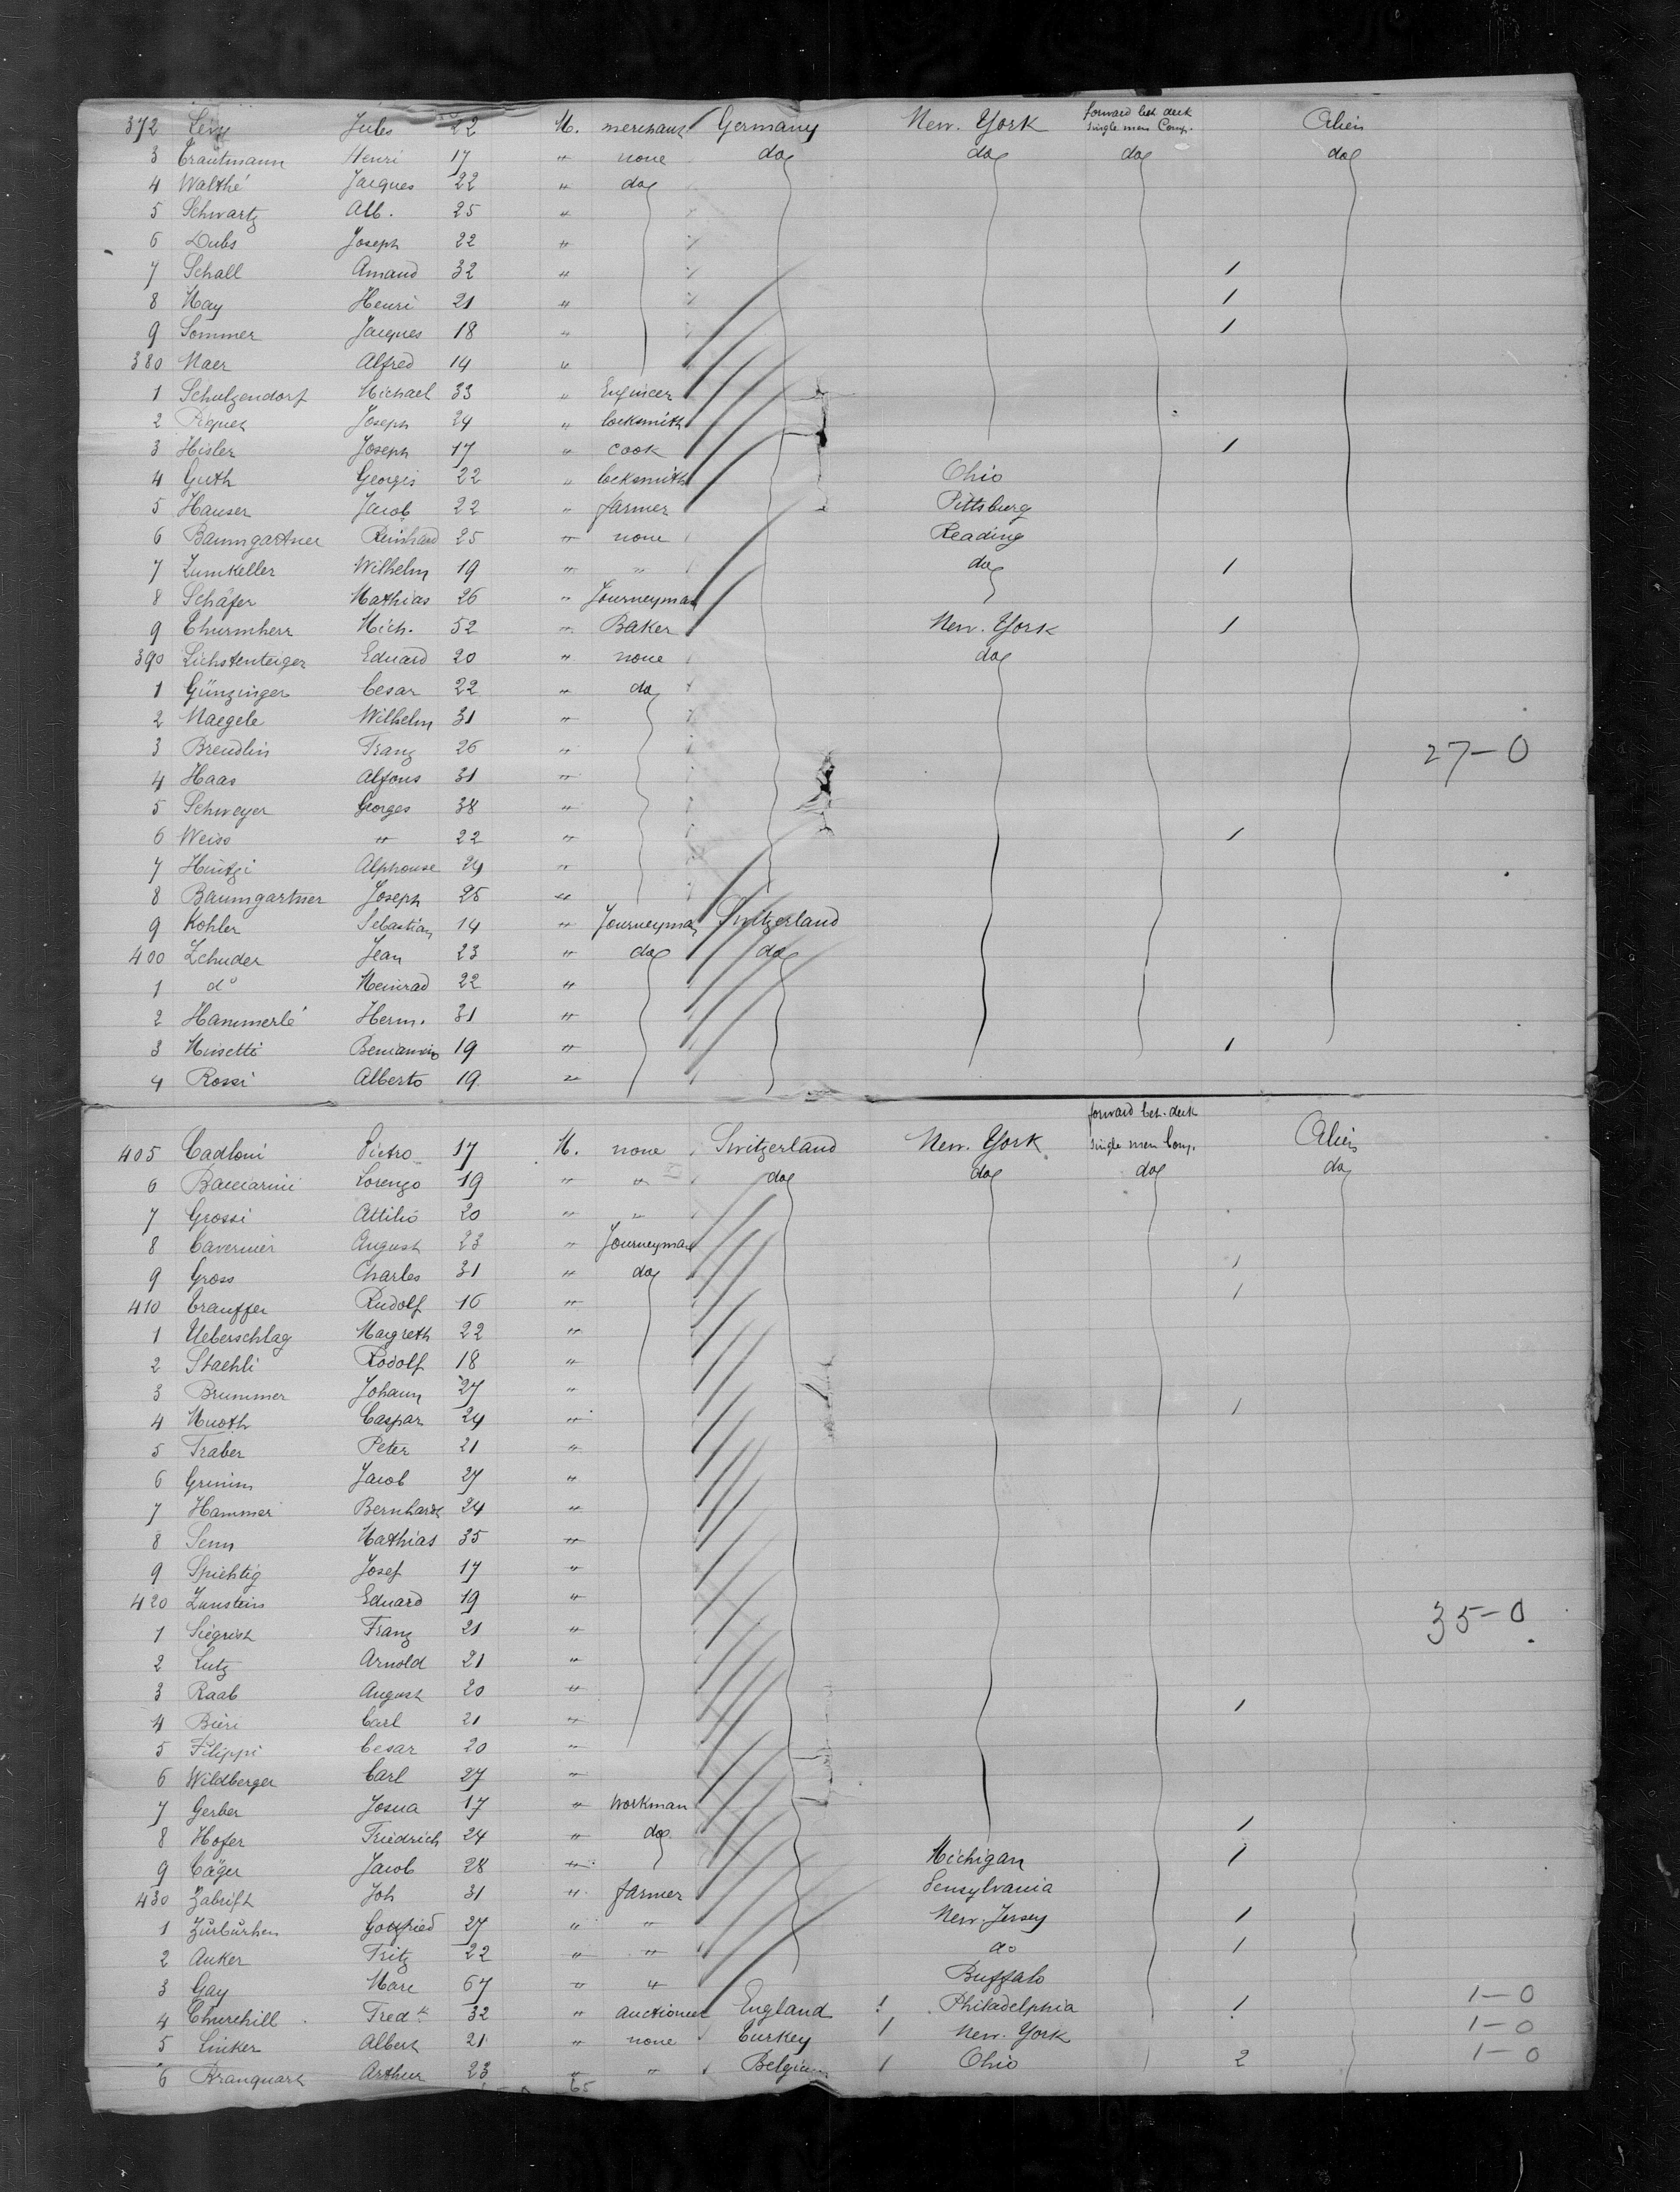 372 Levy Jules 22 M. merchant Germany New. York forward bet. deck single men Comp. Alien
3 Trautmann Henri 17 " none do do do do
4 Walthé Jacques 22 " do
5 Schwartz Alb. 25 "
6 Dubs Joseph 22 "
7 Schall Amand 32 " 1
8 May Henri 21 " 1
9 Sommer Jacques 18 " 1
380 Maer Alfred 14 "
1 Schulzendorf Michael 33 " Engineer
2 Piquet Joseph 24 " locksmith
3 Hisler Joseph 17 " Cook 1
4 Guth Georges 22 " locksmith Ohio
5 Hauser Jacob 22 " farmer Pittsburg
6 Baumgartner Reinhard 25 " none Reading
7 Zumkeller Wilhelm 19 " " do 1
8 Schäfer Mathias 26 " Journeyman
9 Thurmherr Mich. 52 " Baker New. York 1
390 Lichstenteiger Eduard 20 " none do
1 Günzinger Cesar 22 " do
2 Naegele Wilhelm 31 "
3 Brendlin Franz 26 " 27-0
4 Haas Alfons 31 "
5 Schweyer Georges 38 "
6 Weiss " 22 " 1
7 Hintzi Alphonse 24 "
8 Baumgartner Joseph 25 "
9 Kohler Sebastian 14 " Journeyman Switzerland
400 Zchuder Jean 23 " do do
1 do Meinrad 22 "
2 Hammerlé Herm. 31 "
3 Minetti Beniamin 19 " 1
4 Rossi Alberto 19 "
forward bet. deck
405 Cadloni Pietro 17 M. none Switzerland New. York single men Comp. Alien
6 Bacciarini Lorenzo 19 " " do do do do
7 Grossi Attilio 20 " "
8 Cavernier August 23 " Journeyman
9 Gross Charles 31 " do 1
410 Crauffer Rudolf 16 " 1
1 Ueberschlag Margreth 22 "
2 Staehli Rodolf 18 "
3 Brummer Johann 27 "
4 Muoth Caspar 24 " 1
5 Traber Peter 21 "
6 Grimm Jacob 27 "
7 Hammer Bernhardt 24 "
8 Senn Mathias 35 "
9 Spichtig Josef 17 "
420 Zunstein Eduard 19 " 35-0
1 Siegrist Franz 21 "
2 Lutz Arnold 21 "
3 Raab August 20 "
4 Bieri Carl 21 " 1
5 Filippi Cesar 20 "
6 Wildberger Carl 27 "
7 Gerber Josua 17 " Workman
8 Hofer Friedrich 24 " do 1
9 Cäger Jacob 28 " Michigan 1
430 Zabrift Joh 31 " farmer Pensylvania
1 Zürbürhen Gottfried 27 " " New. Jersey 1
2 Anker Fritz 22 " " do 1
3 Gay Marc 67 " " Buffalo
4 Churchill Fredk 32 " Auctioneer England 1 Philadelphia 1 1-0
5 Linker Albert 21 " none Turkey 1 New. York 1-0
6 Branquart Arthur 23 " " Belgium 1 Ohio 2 1-0
65